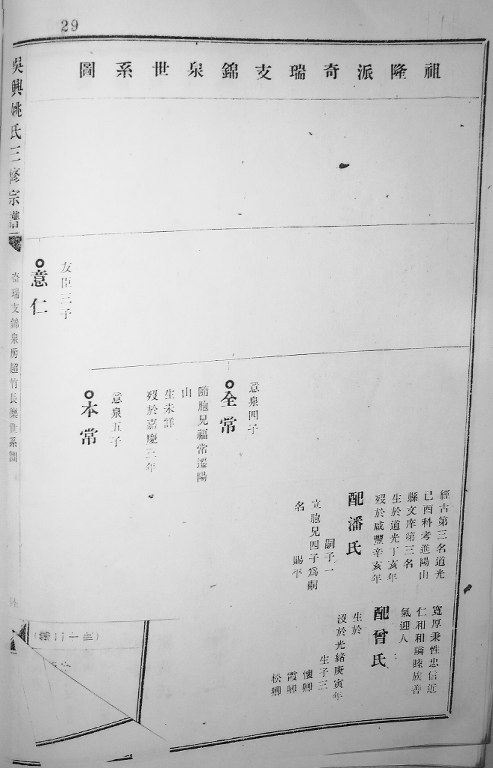 29
祖隆派奇瑞支錦泉世系圖
經古第三名道光
己酉科考進陽山
縣文庠第三名
生於道光丁亥年
歿於咸豐辛亥年
配潘氏
嗣子一
立胞兄四子為嗣
名 賜平
寬厚秉性忠信近
仁和和鄰睦族善
氣迎人
配曾氏
生於
沒於光緒庚寅年
生子三
懷卿
霞卿
松卿
意泉四子
全常
隨胞兄福常遷陽
山
生未詳
歿於嘉慶三年
意泉五子
本常
友臣三子
意仁
吳興姚氏三修宗譜
奇瑞支錦泉房超竹長樂世系圖